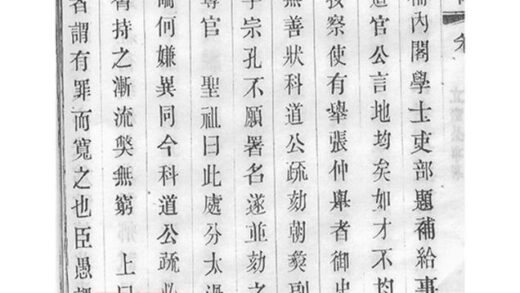 內閣學士吏部題補給事
道官公言地均矣如才不均
按察使有舉張仲舉者御史
無善狀科道公疏劾朝副
宗孔不願署名遂並劾之
官 聖祖曰此處分太過
何嫌異同今科道公疏必
持之漸流獘無窮 上曰
者謂有罪而寬之也臣愚